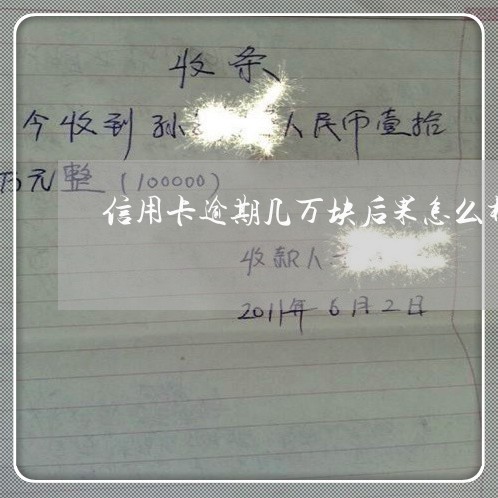 收条
今收到孙 人民币壹拾
万元整（100000）
信用卡逾期几万块后果怎么
收款人
2011年6月2日